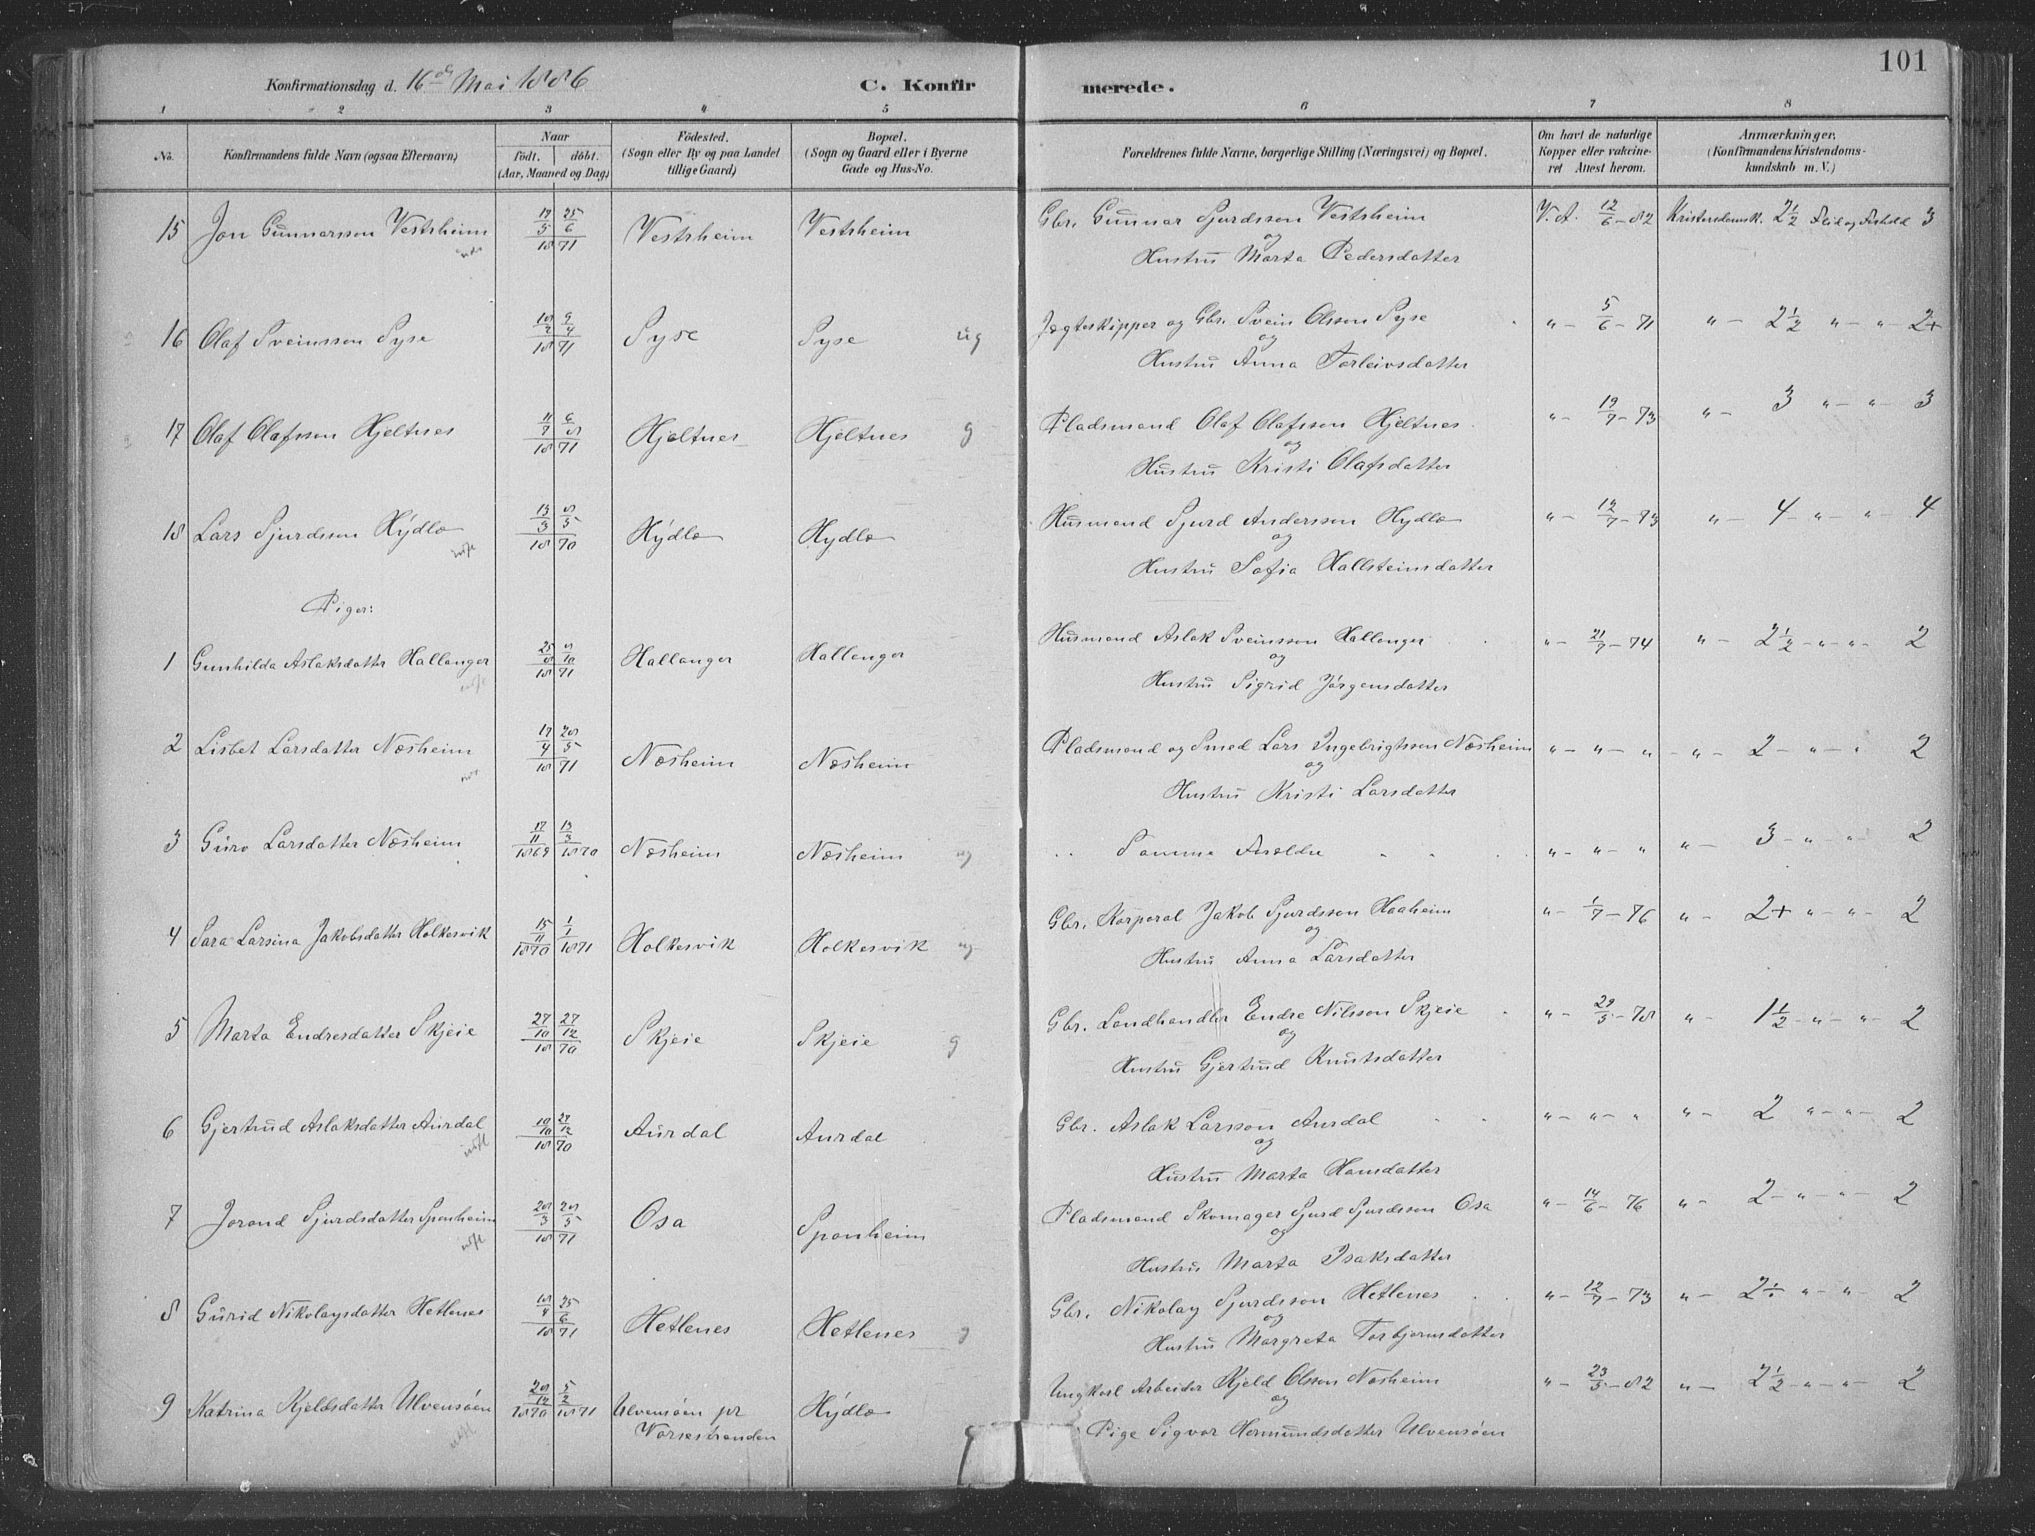 101
Konfirmationsdag d. 16de Mai 1886 C. Konfirmerede.
1 2 3 4 5 6 7 8
No. Konfirmandens fulde Navn (ogsaa Efternavn) Naar født. døbt. (Aar, Maaned og Dag) Fødested. (Sogn eller By og paa Landet tillige Gaard) Bopæl. (Sogn og Gaard eller i Byerne Gade og Hus-No. Forældrenes fulde Navne, borgerlige Stilling (Næringsvei) og Bopæl. Om havt de naturlige Kopper eller vakcineret Attest herom. Anmærkninger. (Konfirmandens Kristendomskundskab m. V.)
15 Jon Gunnarsson Vestrheim 17/5 25/6 1871 Vestrheim Vestrheim Gbr. Gunnar Sjurdsson Vestrheim V. A. 12/6 - 82 Kristendomsk. 2 1/2 Flid og Forhold 3
og
Hustru Marta Pedersdatter
16 Olaf Sveinsson Syse 18/2 9/4 1871 Syse Syse ug Jægteskipper og Gbr. Svein Olsson Syse " - 5/6 - 71 " - 2 1/2 " - " - 2+
og
Hustru Anna Torleivsdatter
17 Olaf Olafsson Hjeltnes 11/7 6/8 1871 Hjeltnes Hjeltnes g Pladsmand Olaf Olafsson Hjeltnes " - 19/7 - 73 " - 3 " - " - 3
og
Hustru Kristi Olafsdatter
18 Lars Sjurdsson Hydle 13/3 8/5 1870 Hydle Hydle Husmand Sjurd Andersson Hydle " - 12/7 - 73 " - 4 - " - " - 4
og
Hustru Sofia Hallsteinsdatter
Piger:
1 Gunhilda Aslaksdatter Hallanger 25/8 8/10 1871 Hallanger Hallanger Husmand Aslak Sveinsson Hallanger " - 21/7 - 74 " - 2 1/2 - " - " - 2
og
Hustru Sigrid Jørgensdatter
2 Lisbet Larsdatter Næsheim 17/4 28/5 1871 Næsheim Næsheim Pladsmand og Smed Lars Ingebrigtsson Næsheim " - " - " - " - 2 - " - " 2
og
Hustru Kristi Larsdatter
3 Guro Larsdatter Næsheim 17/11 1869 13/3 1870 Næsheim Næsheim ug Samme Forældre " - " - " " - 3 - " - " - 2
4 Sara Larsina Jakobsdatter Holkesvik 15/11 1870 1/1 1871 Holkesvik Holkesvik ug Gbr. Korporal Jakob Sjurdsson Haaheim " - 1/7 - 76 " - 2+ " - " - 2
og
Hustru Anna Larsdatter
5 Marta Endresdatter Skjeie 27/10 27/12 1870 Skjeie Skjeie g Gbr. Landhandler Endre Nilsson Skjeie " - 29/5 - 78 " - 1 1/2 - " - " - 2
og
Hustru Gjertrud Knutsdatter
6 Gjertrud Aslaksdatter Aurdal 18/10 27/12 1870 Aurdal Aurdal Gbr. Aslak Larsson Aurdal " - " - " " - 2 " - " - 2
og
Hustru Marta Hansdatter
7 Jorand Sjurdsdatter Sponheim 28/3 28/5 1871 Osa Sponheim Pladsmand Skomager Sjurd Sjurdsson Osa " - 14/6 - 76 " - 2 - " - " - 2
og
Hustru Marta Isaksdatter
8 Gurid Nikolaysdatter Hetlenes 18/4 25/6 1871 Hetlenes Hetlenes g Gbr. Nikolay Sjurdsson Hetlenes " - 12/7 - 73 " - 2 ÷ " - " - 2
og
Hustru Margreta Torbjørnsdatter
9 Katrina Kjeldsdatter Ulvensøen 28/12 1870 5/2 1871 Ulvensøen pr Hydle Ungkarl Arbeider Kjeld Olsson Næsheim " - 23/5 - 82 " - 2 1/2 - " - " - 2
Vorsestranden og
Pige Sigvor Hermundsdatter Ulvensøen